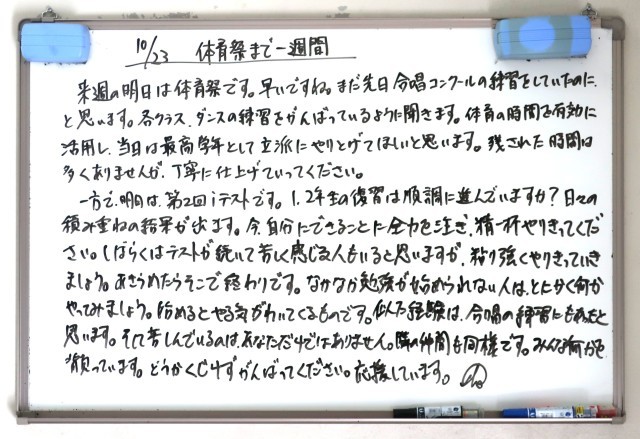 10/23 体育祭まで一週間
来週の明日は体育祭です。早いですね。まだ先日合唱コンクールの練習をしていたのに、
と思います。各クラス、ダンスの練習をがんばっているように聞きます。体育の時間を有効に
活用し、当日は最高学年として立派にやりとげてほしいと思います。残された時間は
多くありませんが、丁寧に仕上げていってください。
一方で、明日は、第2回iテストです。1、2年生の復習は順調に進んでいますか?日々の
積み重ねの結果が出ます。今、自分にできることに全力を注ぎ、精一杯やりきってくだ
さい。しばらくはテストが続いて苦しく感じる人もいると思いますが、粘り強くやりきっていき
ましょう。あきらめたらそこで終わりです。なかなか勉強が始められない人は、とにかく何か
やってみましょう。始めるとやる気がわいてくるものです。似た経験は、合唱の練習にもあったと
思います。そして苦しんでいるのはあなただけではありません。隣の仲間も同様です。みんな何かを
背負っています。どうかくじけずがんばってください。応援しています。